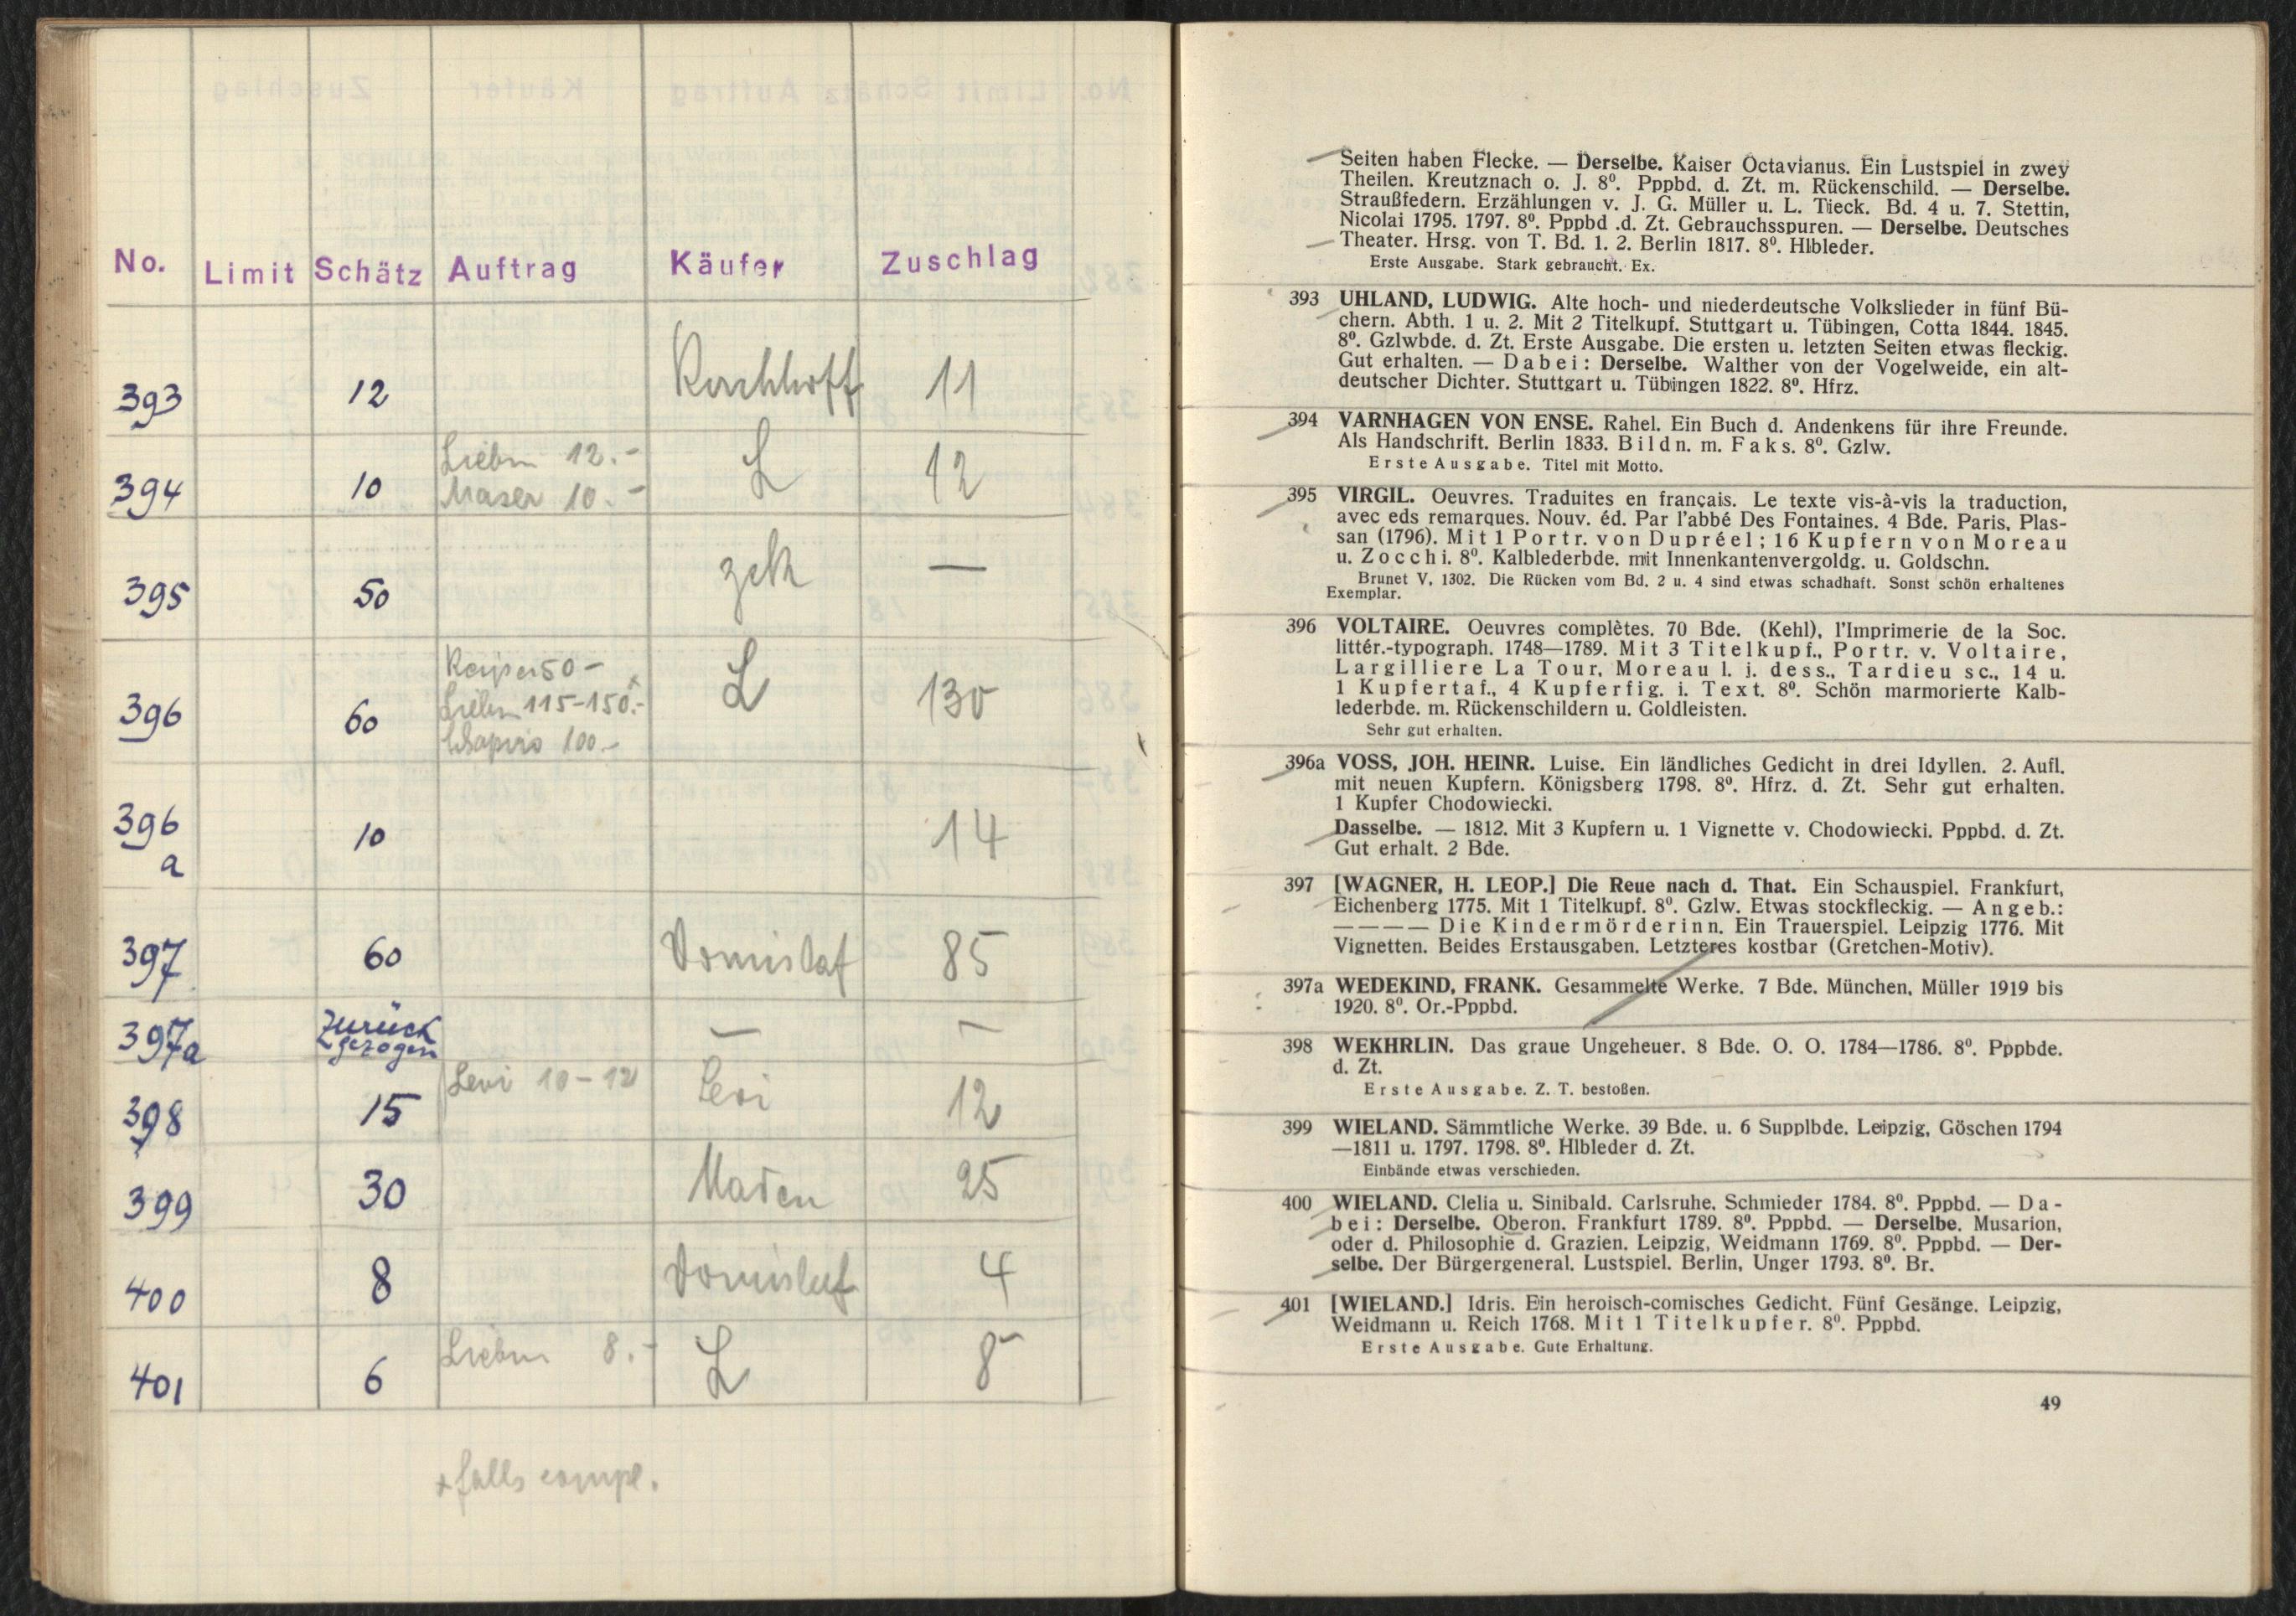 No. Limit Schätz Auftrag Käufer Zuschlag
393 12 Kirchhoff 11
394 10 Liebm 12.- L 12
Maser 10.-
395 50 zck —
396 60 L 130
50 -
Liebm 115-150.-
Schapiro 100.-
396 a 10 14
397 60 85
397a Zurück gezogen — —
398 15 Levi 10-12 Levi 12
399 30 25
400 8 4
401 6 Liebm 8.- L 8
+ falls compl.
Seiten haben Flecke. — Derselbe. Kaiser Octavianus. Ein Lustspiel in zwey
Theilen. Kreutznach o. J. 8⁰. Pppbd. d. Zt. m. Rückenschild. — Derselbe.
Straußfedern. Erzählungen v. J. G. Müller u. L. Tieck. Bd. 4 u. 7. Stettin,
Nicolai 1795. 1797. 8⁰. Pppbd .d. Zt. Gebrauchsspuren. — Derselbe. Deutsches
Theater. Hrsg. von T. Bd. 1. 2. Berlin 1817. 8⁰. Hlbleder.
Erste Ausgabe. Stark gebraucht. Ex.
393 UHLAND, LUDWIG. Alte hoch- und niederdeutsche Volkslieder in fünf Bü-
chern. Abth. 1 u. 2. Mit 2 Titelkupf. Stuttgart u. Tübingen, Cotta 1844. 1845.
8⁰. Gzlwbde. d. Zt. Erste Ausgabe. Die ersten u. letzten Seiten etwas fleckig.
Gut erhalten. — Dabei: Derselbe. Walther von der Vogelweide, ein alt-
deutscher Dichter. Stuttgart u. Tübingen 1822. 8⁰. Hfrz.
394 VARNHAGEN VON ENSE. Rahel. Ein Buch d. Andenkens für ihre Freunde.
Als Handschrift. Berlin 1833. Bildn. m. Faks. 8⁰. Gzlw.
Erste Ausgabe. Titel mit Motto.
395 VIRGIL. Oeuvres. Traduites en français. Le texte vis-à-vis la traduction,
avec eds remarques. Nouv. éd. Par l'abbé Des Fontaines. 4 Bde. Paris, Plas-
san (1796). Mit 1 Portr. von Dupréel; 16 Kupfern von Moreau
u. Zocchi. 8⁰. Kalblederbde. mit Innenkantenvergoldg. u. Goldschn.
Brunet V, 1302. Die Rücken vom Bd. 2 u. 4 sind etwas schadhaft. Sonst schön erhaltenes
Exemplar.
396 VOLTAIRE. Oeuvres complètes. 70 Bde. (Kehl), l'Imprimerie de la Soc.
littér.-typograph. 1748—1789. Mit 3 Titelkupf., Portr. v. Voltaire,
Largilliere La Tour, Moreau l. j. dess., Tardieu sc., 14 u.
1 Kupfertaf., 4 Kupferfig. i. Text. 8⁰. Schön marmorierte Kalb-
lederbde. m. Rückenschildern u. Goldleisten.
Sehr gut erhalten.
396a VOSS, JOH. HEINR. Luise. Ein ländliches Gedicht in drei Idyllen. 2. Aufl.
mit neuen Kupfern. Königsberg 1798. 8⁰. Hfrz. d. Zt. Sehr gut erhalten.
1 Kupfer Chodowiecki.
Dasselbe. — 1812. Mit 3 Kupfern u. 1 Vignette v. Chodowiecki. Pppbd. d. Zt.
Gut erhalt. 2 Bde.
397 [WAGNER, H. LEOP.] Die Reue nach d. That. Ein Schauspiel. Frankfurt,
Eichenberg 1775. Mit 1 Titelkupf. 8⁰. Gzlw. Etwas stockfleckig. — Angeb.:
— — — — Die Kindermörderinn. Ein Trauerspiel. Leipzig 1776. Mit
Vignetten. Beides Erstausgaben. Letzteres kostbar (Gretchen-Motiv).
397a WEDEKIND, FRANK. Gesammelte Werke. 7 Bde. München, Müller 1919 bis
1920. 8⁰. Or.-Pppbd.
398 WEKHRLIN. Das graue Ungeheuer. 8 Bde. O. O. 1784—1786. 8⁰. Pppbde.
d. Zt.
Erste Ausgabe. Z. T. bestoßen.
399 WIELAND. Sämmtliche Werke. 39 Bde. u. 6 Supplbde. Leipzig, Göschen 1794
—1811 u. 1797. 1798. 8⁰. Hlbleder d. Zt.
Einbände etwas verschieden.
400 WIELAND. Clelia u. Sinibald. Carlsruhe. Schmieder 1784. 8⁰. Pppbd. — Da-
bei: Derselbe. Oberon. Frankfurt 1789. 8⁰. Pppbd. — Derselbe. Musarion,
oder d. Philosophie d. Grazien. Leipzig, Weidmann 1769. 8⁰. Pppbd. — Der-
selbe. Der Bürgergeneral. Lustspiel. Berlin, Unger 1793. 8⁰. Br.
401 [WIELAND.] Idris. Ein heroisch-comisches Gedicht. Fünf Gesänge. Leipzig,
Weidmann u. Reich 1768. Mit 1 Titelkupfer. 8⁰. Pppbd.
Erste Ausgabe. Gute Erhaltung.
49